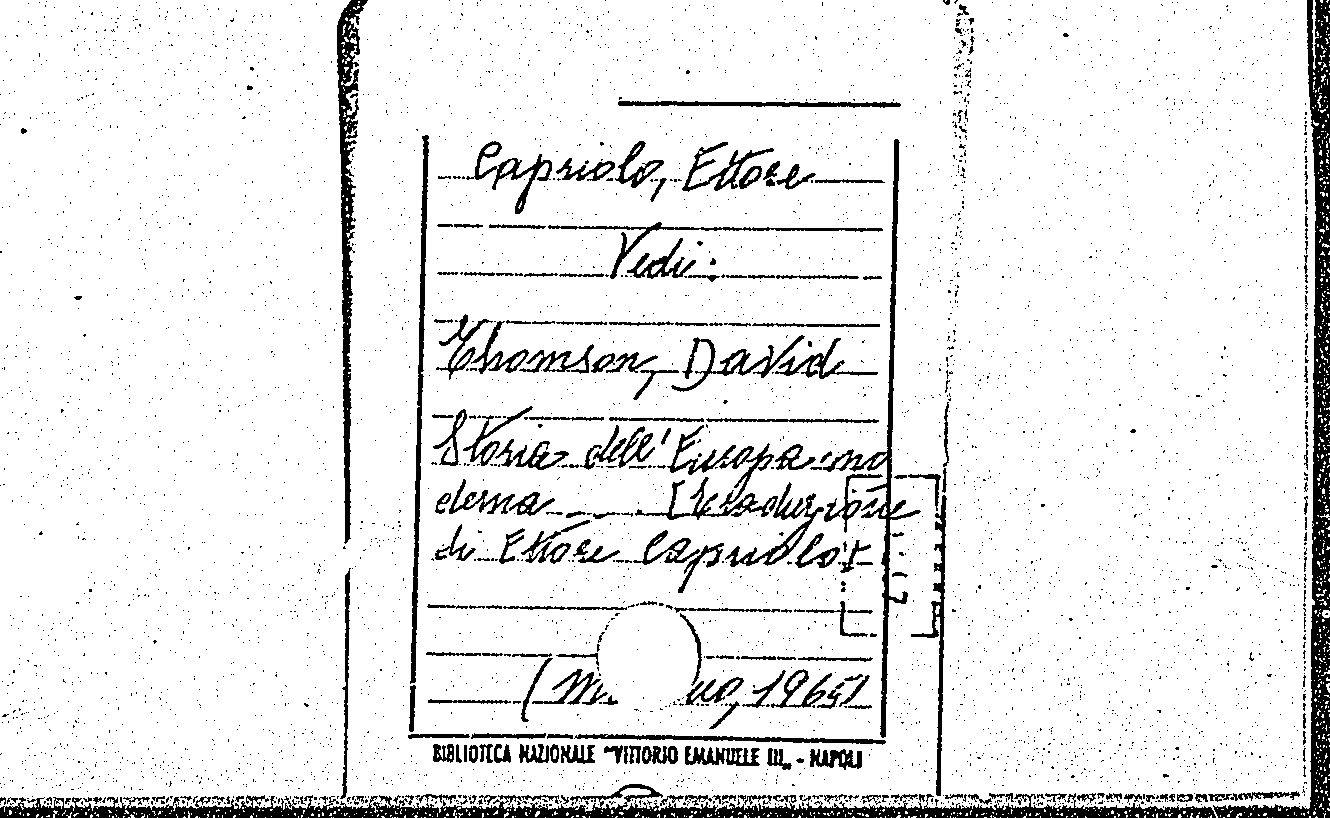 Capriolo, Ettore
Vedi:
Thomson, David
Storia dell'Europa mo
derna . . . [Traduzione
di Ettore Capriolo].
1965)
BIBLIOTECA NAZIONALE "VITTORIO EMANUELE III" - NAPOLI